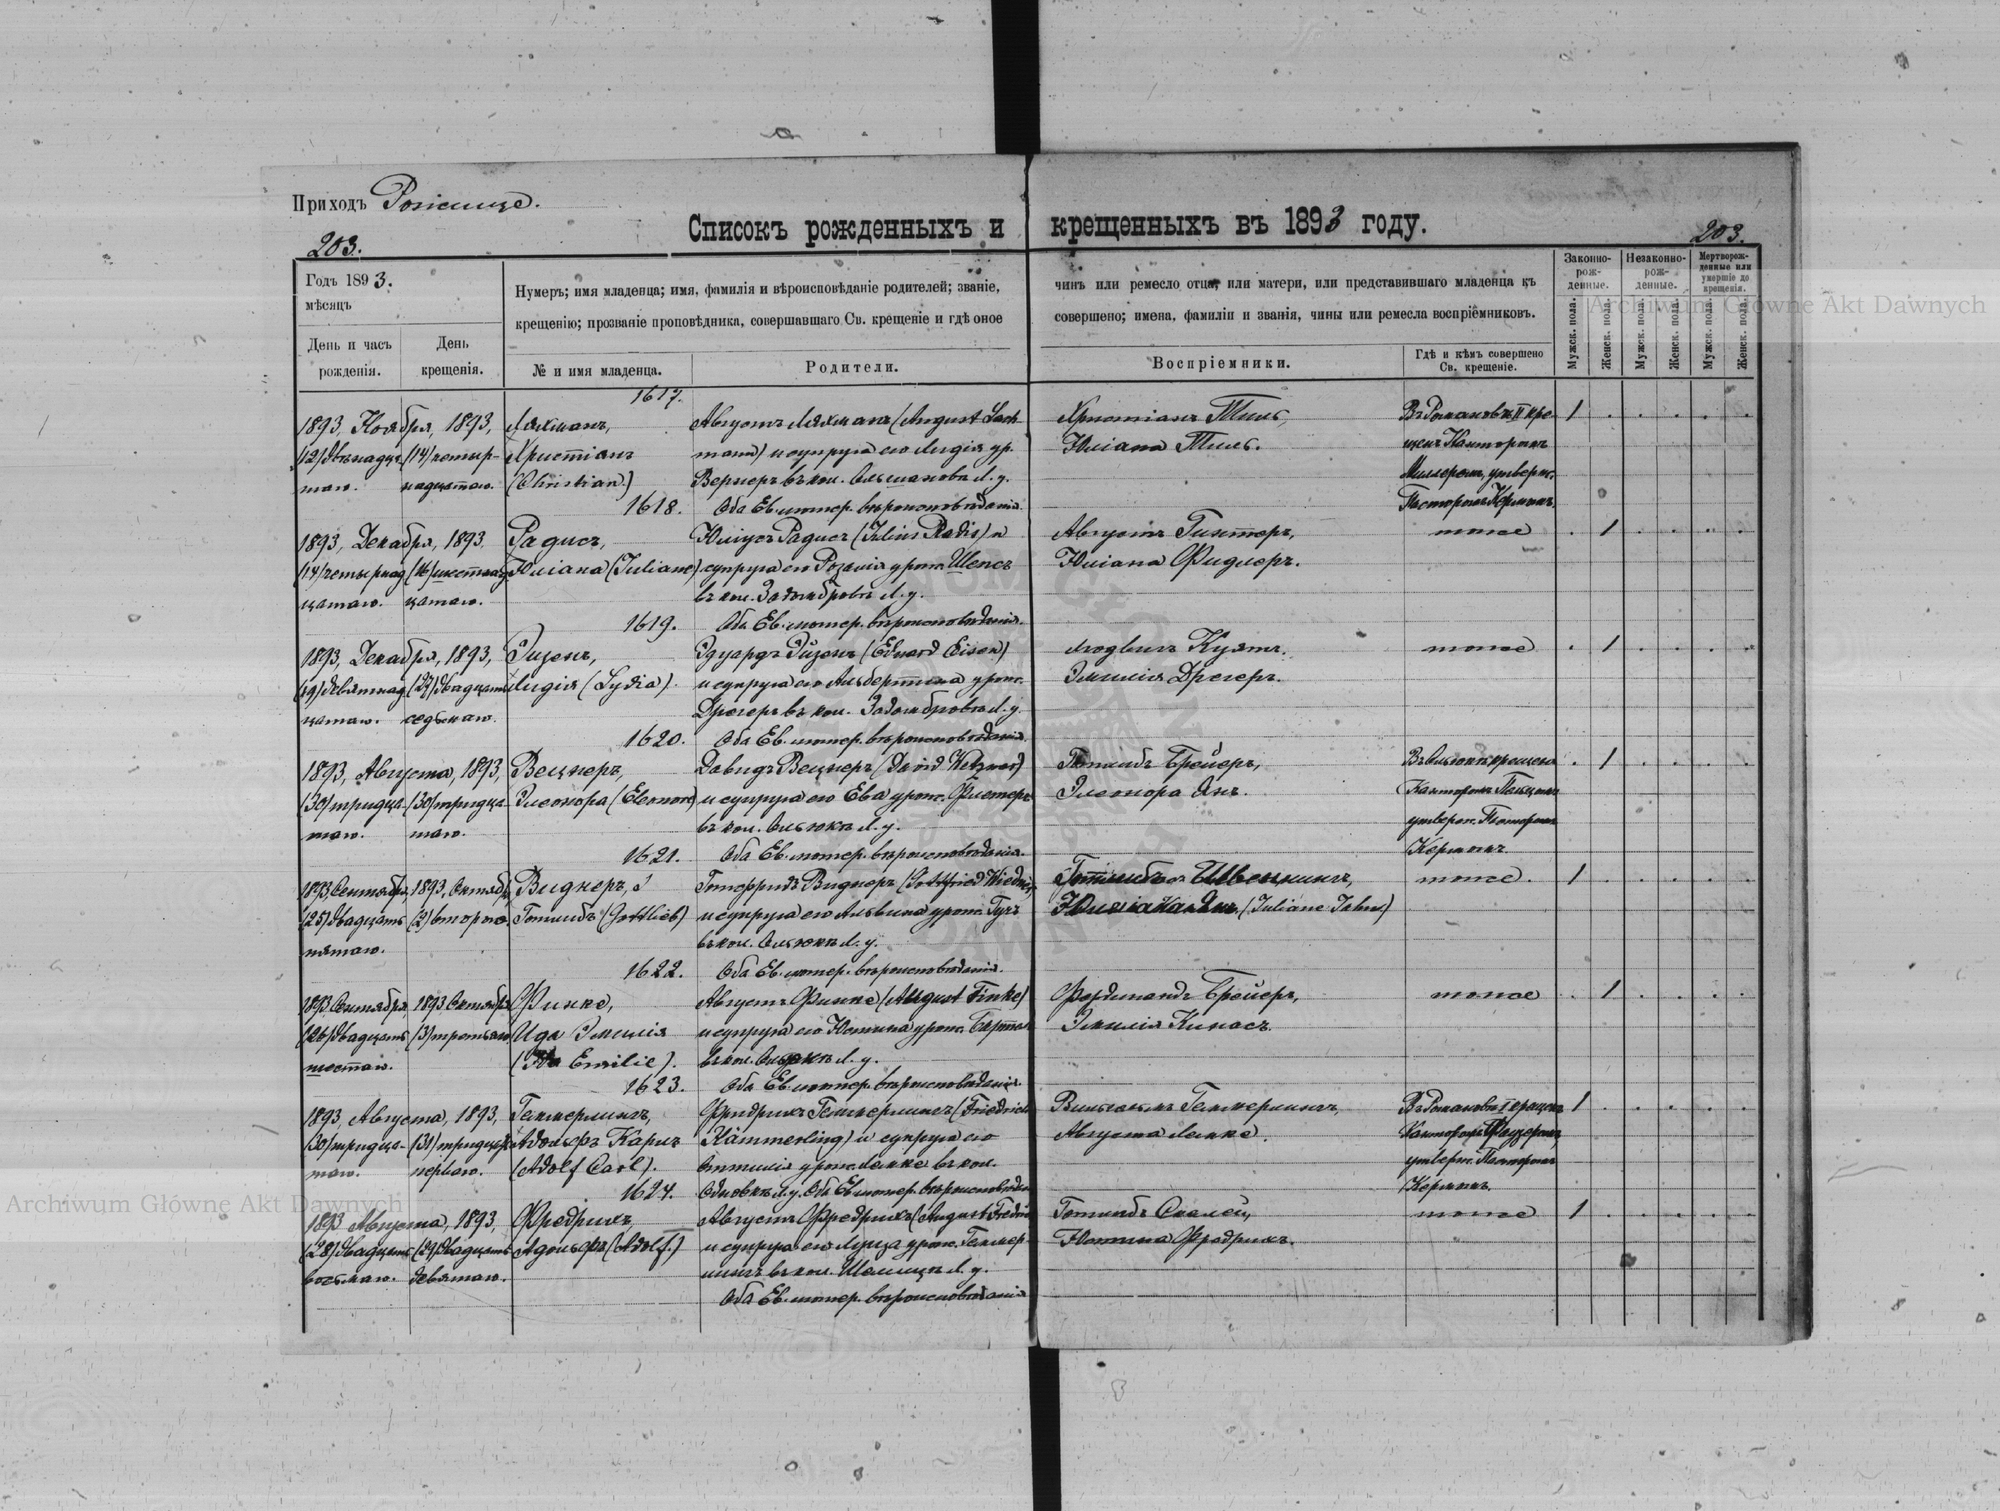 Приходъ Рожище.
203.
Списокъ рожденныхъ и крещенныхъ въ 1893 году.
203.
Годъ 1893.
мѣсяцъ
День и часъ рожденія.
День крещенія.
Нумеръ; имя младенца; имя, фамилія и вѣроисповѣданіе родителей; званіе, чинъ или ремесло отца, или матери, или представившаго младенца къ
крещенію; прозваніе проповѣдника, совершавшаго Св. крещеніе и гдѣ оное совершено; имена, фамиліи и званія, чины или ремесла воспріемниковъ.
№ и имя младенца.
Родители.
Воспріемники.
Гдѣ и кѣмъ совершено Св. крещеніе.
Законно-рож-денные.
Незаконно-рож-денные.
Мертворож-денные или умершіе до крещенія.
Мужск. пола.
Женск. пола.
Мужск. пола.
Женск. пола.
Мужск. пола.
Женск. пола.
1617.
1893, Ноября, 1893, Ляхманъ, Августъ Ляхманъ (August Lach Христіанъ Тиль, Въ Романовкѣ II кре 1
(12) двѣнадца (14) четыр- Христіанъ mann) и супруга его Лидія ур. Юліана Тиль. щенъ Канторомъ
таго. надцатаго. (Christian) Вернеръ въ кол. Ольшанова Л. у. Миллеромъ, утвержд.
1618. Оба Ев. лютер. вѣроисповѣданія. Пасторомъ Кермомъ.
1893, Декабря, 1893. Радисъ, Юліусъ Радисъ (Julius Radis) и Августъ Гинтеръ, тоже 1
(14) четырнад (16) шестнад Юліана (Juliane) супруга его Розалія урож. Шенсъ Юліана Фидлеръ.
цатаго. цатаго. въ кол. Задомброве Л. у.
1619. Оба Ев. лютер. вѣроисповѣданія.
1893, Декабря, 1893, Эизенъ, Эдуардъ Эйзенъ (Eduard Eisen) Людвигъ Куятъ. тоже 1
(19) девятнад (27) двадцать Лидія (Lydia). и супруга его Альбертина урож. Эмилія Дрегеръ.
цатаго. седьмаго. Дрегеръ въ кол. Задомброве Л. у.
1620. Оба Ев. лютер. вѣроисповѣданія.
1893, Августа, 1893, Вецнеръ, Давидъ Вецнеръ (David Wetzner) Готлибъ Брейеръ, 1
(30) тридца (30) тридца Элеонора (Eleonore) и супруга его Ева урож. Элеонора Янъ. Канторомъ
таго. таго. въ кол. Ольюкѣ Л. у. утвержд. Пасторомъ
1621. Оба Ев. лютер. вѣроисповѣданія. Кермомъ.
1893, Сентября, 1893, Октября, Виднеръ, Готфридъ Виднеръ (Gottfried Wiedner) Готлибъ тоже. 1
(25) двадцать (2) втораго. Готлибъ (Gottlieb) и супруга его Альвина урож. Гухъ Юліана Янъ. (Juliane Jahn)
пятаго. въ кол. Ольюкѣ Л. у.
1622. Оба Ев. лютер. вѣроисповѣданія.
1893, Сентября, 1893 Октября, Финке, Августъ Финке (August Finke) Фердинандъ Брейеръ, тоже 1
(26) двадцать (3) третьяго Ида Эмилія и супруга его Юстина урож. Эмилія Кинасъ.
шестаго. (Ida Emilie). въ кол. Ольюкѣ Л. у.
1623. Оба Ев. лютер. вѣроисповѣданія.
1893, Августа, 1893, Геммерлингъ, Фридрихъ Геммерлингъ (Friedrich Вильгельмъ Геммерлингъ, Въ Романовкѣ I крещенъ 1
(30) тридца- (31) тридцать Адольфъ Карлъ Kämmerling) и супруга его Августа Лемке. Канторомъ
таго. перваго. (Adolf Carl). Оттилія урож. Лемке въ кол. утвержд. Пасторомъ
1624. Л. у. Оба Ев. лютер. вѣроисповѣданія Кермомъ.
1893 Августа, 1893, Фредрихъ, Августъ Фредрихъ (August Fredrich Готлибъ тоже 1
(28) двадцать (29) двадцать Адольфъ (Adolf.) и супруга его Луиза урож. Геммер- Юстина Фредрихъ.
восьмаго. девятаго. лингъ въ кол. Л. у.
Оба Ев. лютер. вѣроисповѣданія
Archiwum Główne Akt Dawnych
Archiwum Główne Akt Dawnych